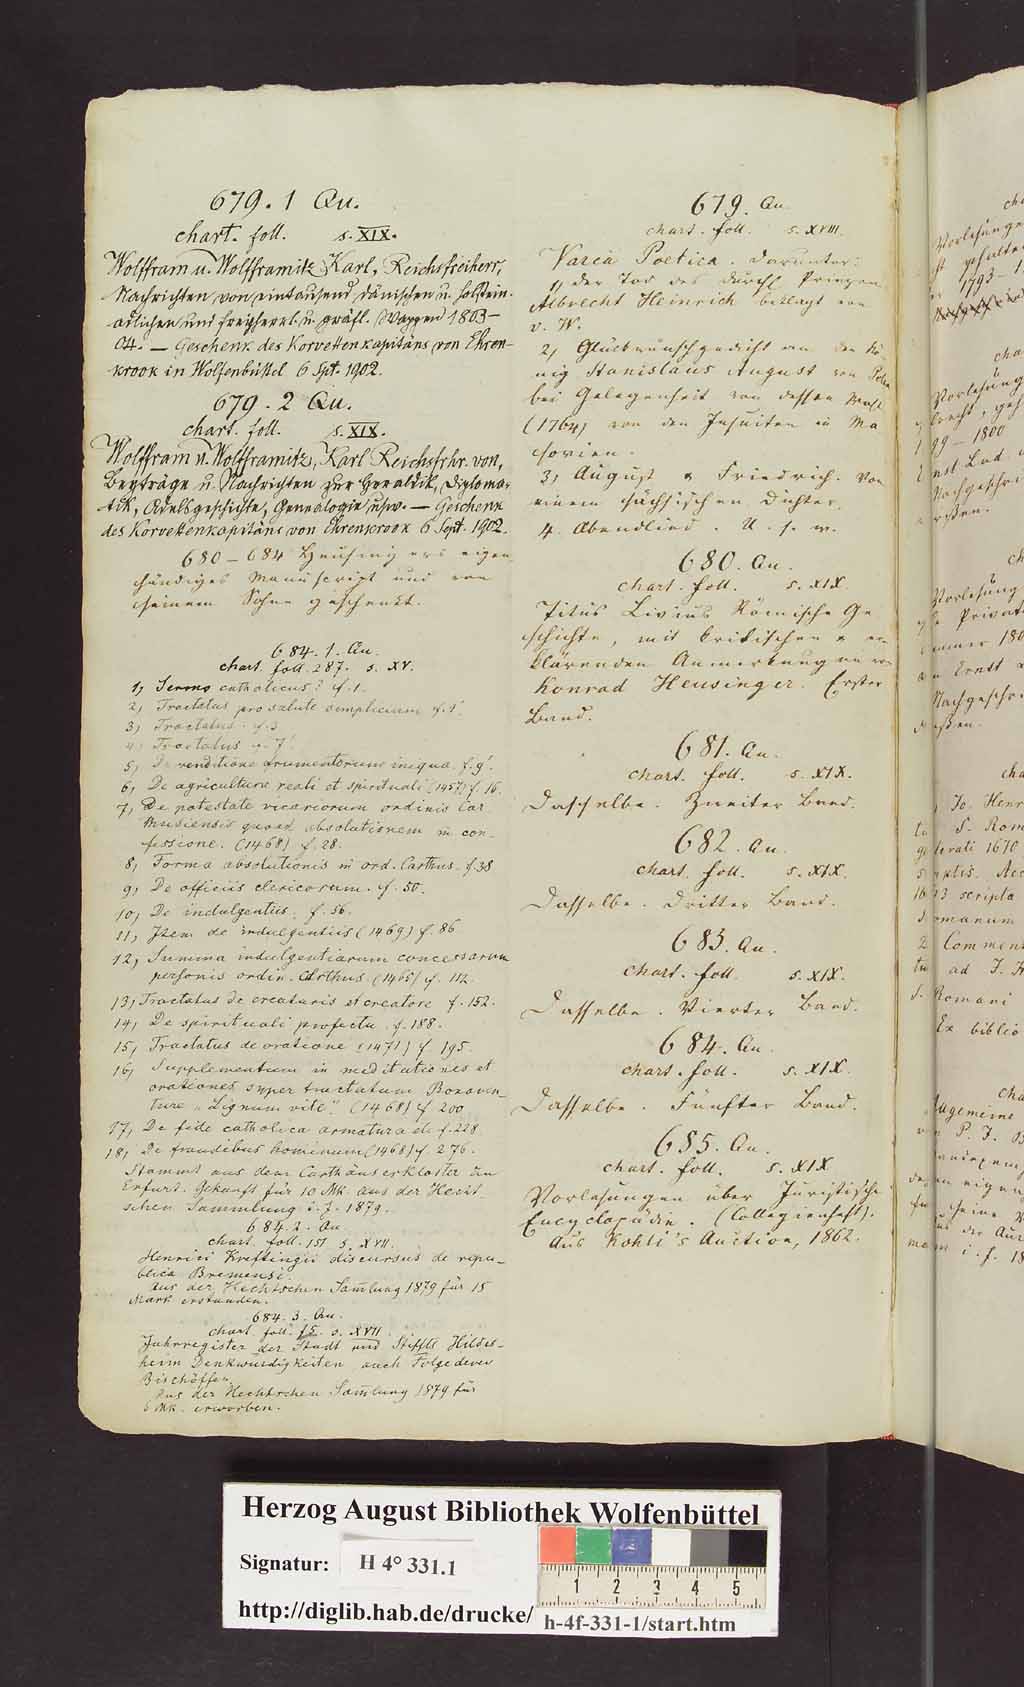 679. 1 Qu.
chart. foll. s. XIX.
Wolffram u. Wolfframitz Karl, Reichsfreiherr,
Nachrichten von eintausend dänischen u. holstein.
adlichen und freyherrl. u. gräfl. Wappen 1803–
04. — Geschenk des Korvettenkapitäns von Ehren-
krook in Wolfenbüttel 6 Spt. 1902.
679. 2 Qu.
chart. foll. s. XIX.
Wolffram u. Wolfframitz, Karl Reichsfrhr. von,
Beyträge u. Nachrichten zur Heraldik, Diploma-
tik, Adelsgeschichte, Genealogie usw. — Geschenk
des Korvettenkapitäns von Ehrenkrook 6 Sept. 1902.
680–684 Heusingers eigen-
händiges Manuscript und von
seinem Sohne geschenkt.
684. 1. Qu.
chart. foll. 287. s. XV.
1, Sermo catholicus? f. 1.
2, Tractatus pro salute simplicium f. 1'
3, Tractatus f. 3
4, Tractatus f. 7'
5, De venditione frumentorum iniqua. f. 9'.
6, De agricultura reali et spirituali (1457) f. 16.
7, De potestate vicariorum ordinis Car
thusiensis quoad absolutionem in con-
fessione. (1468) f. 28.
8, Forma absolutionis in ord. Carthus. f. 38
9, De officiis clericorum. f. 50.
10, De indulgentiis. f. 56.
11, Item de indulgentiis (1469) f. 86
12, Summa indulgentiarum concessarum
personis ordin. Carthus. (1465) f. 112.
13, Tractatus de creaturis et creatore f. 152.
14, De spirituali profectu. f. 188.
15, Tractatus de oratione (1471) f. 195.
16, Supplementum in meditationes et
orationes super tractatum Bonaven-
ture "Lignum vite" (1468) f. 200
17, De fide catholica armatura di f. 228
18, De fraudibus hominum (1468) f. 276.
Stammt aus dem Carthäuserkloster in
Erfurt. Gekauft für 10 Mk. aus der Hecht
schen Sammlung i. J. 1879.
684. 2. Qu
chart. foll. 151 s. XVII.
Henrici Kreftingii discursus de repu-
blica Bremensi.
Aus der Hechtschen Samlung 1879 für 15
Mark erstanden.
684. 3. Qu.
chart. foll. 15. s. XVII
Jahrregister der Stadt und Stiffts Hildes-
heim Denkwürdigkeiten auch Folge derer
Bischöffen.
Aus der Hechtschen Samlung 1879 für
6 Mk. erworben.
679. Qu.
chart. foll. s. XVIII.
Varia Poetica. Darunter:
1, der Tod des durchl. Prinzen
Albrecht Heinrich beklagt von
v. W.
2, Glückwunschgedicht an den Kö-
nig Stanislaus August von Polen
bei Gelegenheit von dessen Wahl
(1764) von den Jesuiten in Ma
sovien.
3, August u Friedrich. Von
einem sächsischen Dichter.
4. Abendlied. U. s. w.
680. Qu.
chart. foll. s. XIX.
Titus Livius Römische Ge
schichte, mit kritischen u er-
klärenden Anmerkungen von
Konrad Heusinger. Erster
Band.
681. Qu.
chart. foll. s. XIX.
Dasselbe. Zweiter Band.
682. Qu.
chart. foll. s. XIX.
Dasselbe. Dritter Band.
683. Qu.
chart. foll. s. XIX.
Dasselbe. Vierter Band.
684. Qu.
chart. foll. s. XIX.
Dasselbe. Fünfter Band.
685. Qu.
chart. foll. s. XIX
Vorlesungen über Juristische
Encyclopädie. (Collegienheft).
Aus Kohli's Auction, 1862.
Herzog August Bibliothek Wolfenbüttel
Signatur: H 4° 331.1
http://diglib.hab.de/drucke/
h-4f-331-1/start.htm
1 2 3 4 5